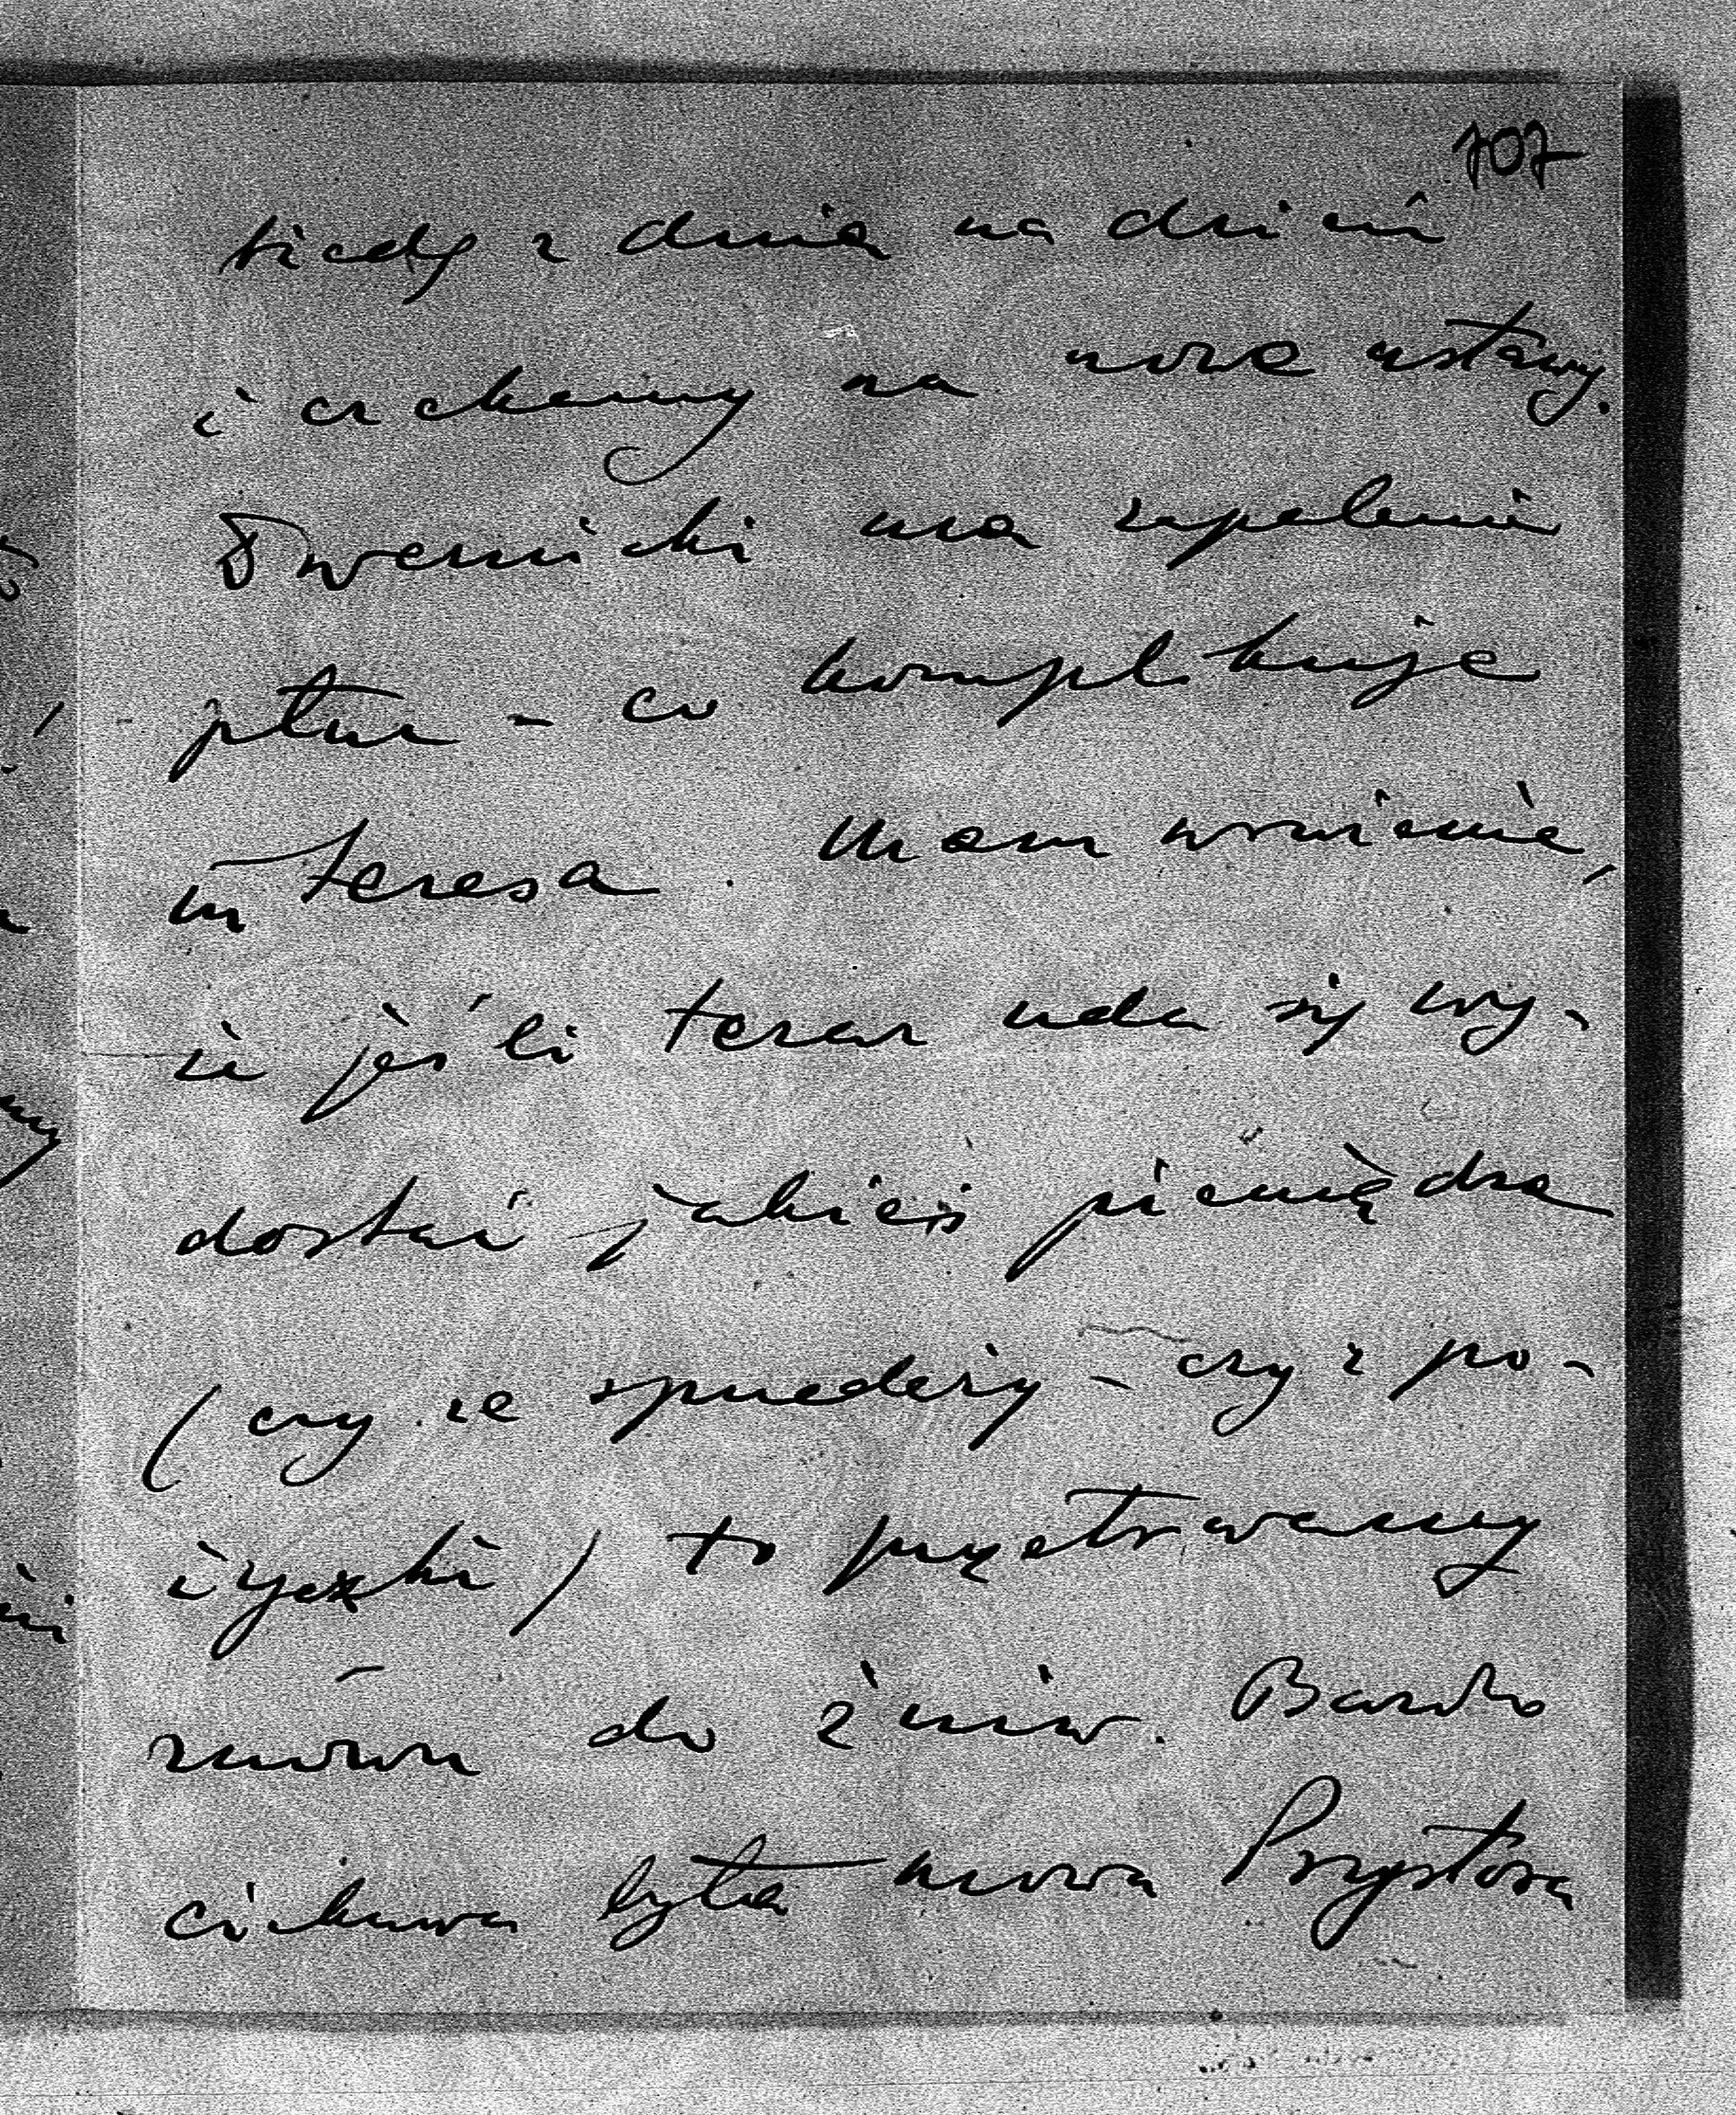 707
biedy z dnia na dzień
i czekamy na nowe ustawy.
Dwernicki ma zapalenie
płuc – co komplikuje
interesa. Mam wrażenie,
że jeśli teraz uda się wy-
dostać jakieś pieniądze
(czy ze sprzedaży – czy z po-
życzki) to przetrwamy
znowu do żniw. Bardzo
ciekawa była mowa Prystora